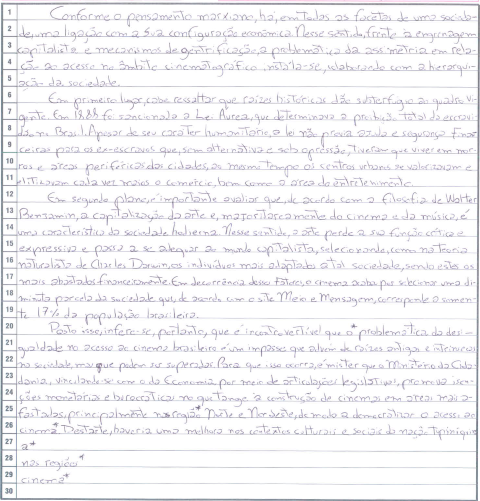 1 Conforme o pensamento marxiano, há, em todas as facetas de uma socieda-
2 de, uma ligação com a sua configuração econômica. Nesse sentido, frente a engrenagem
3 capitalista e mecanismos de gentrificação, a problemática da assimetria em rela-
4 ção ao acesso no âmbito cinematográfico instala-se, elaborando com a hierarqui-
5 zação da sociedade.
6 Em primeiro lugar, cabe ressaltar que raízes históricas dão subterfúgio ao quadro vi-
7 gente. Em 1888 foi sancionada a Lei Áurea, que determinava a proibição total da escravi-
8 dão no Brasil. Apesar de seu caráter humanitário, a lei não previa ajuda e segurança finan-
9 ceiras para os ex-escravos que, sem alternativa e sob opressão, tiveram que viver em mor-
10 ros e áreas periféricas das cidades, ao mesmo tempo os centros urbanos se valorizavam e
11 elitizavam cada vez mais o comércio, bem como a área do entretenimento.
12 Em segundo plano, é importante avaliar que, de acordo com a filosofia de Walter
13 Benjamin, a capitalização da arte e, majoritariamente do cinema e da música, é
14 uma característica da sociedade hodierna. Nesse sentido, a arte perde a sua função crítica e
15 expressiva e passa a se adequar ao mundo capitalista, selecionando, como na teoria
16 naturalista de Charles Darwin, os indivíduos mais adaptados a tal sociedade, sendo estes os
17 mais abastados financeiramente. Em decorrência desse fator, o cinema acaba por selecionar uma di-
18 minuta parcela da sociedade que, de acordo com o site Meio e Mensagem, corresponde a somen-
19 te 17% da população brasileira.
20 Posto isso, infere-se, portanto, que é incontrovertível que o* problemática da desi-
21 gualdade no acesso ao cinema brasileiro é um impasse que advém de raízes antigas e intrínsecas
22 na sociedade, mas que podem ser superadas. Para que isso ocorra, é mister que o Ministério da Cida-
23 dania, vinculando-se com o da Economia, por meio de articulações legislativas, promova isen-
24 ções monetárias e burocráticas no que tange à construção de cinemas em áreas mais a-
25 fastadas, principalmente na região* Norte e Nordeste, de modo a democratizar o acesso ao
26 cinema* Destarte, haveria uma melhora nos contextos culturais e sociais da nação Tupiniquim
27 a*
28 nas regiões*
29 cinema*
30